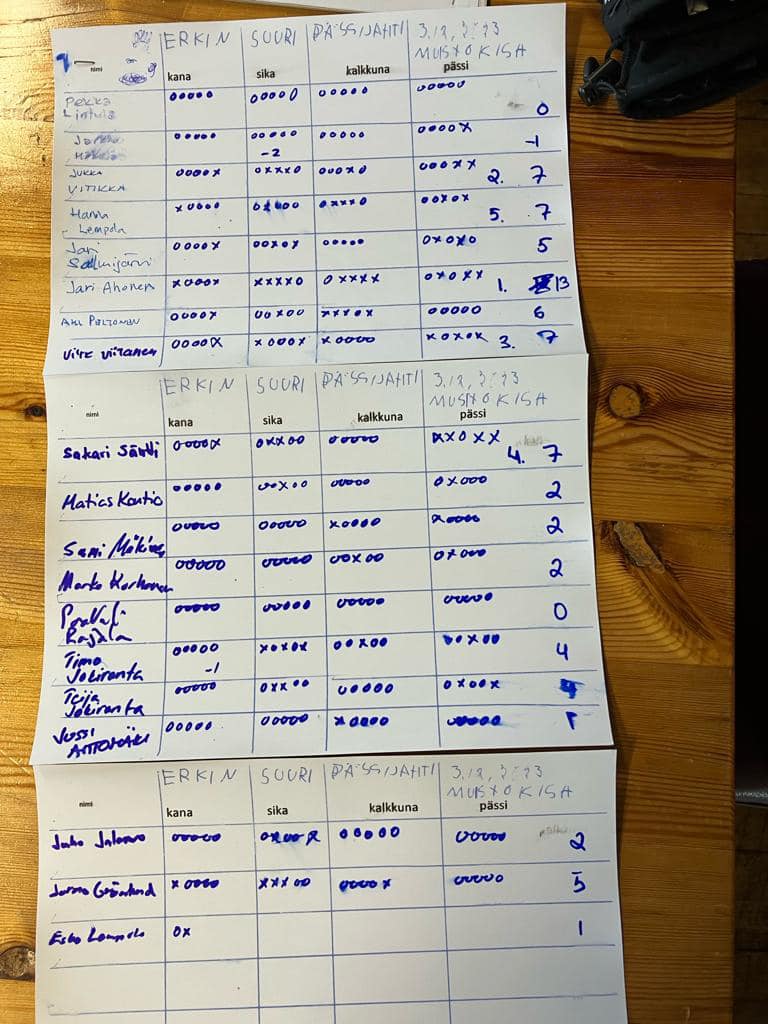 ERKIN SUURI PÄSSIJAHTI 3.12, 2023
MUISTOKISA
nimi kana sika kalkkuna pässi
Pekka Lintula ooooo ooooo ooooo ooooo 0
ooooo ooooo -2 ooooo oooox -1
JUKKA VITIKKA oooox oxxxo ooxo oooxx 2. 7
Hanna Lempola xoooo oxxxo ooxox 5. 7
Jari Salmijärvi oooox ooxox ooooo oxoxo 5
Jari Ahonen xooox xxxxo oxxxx oxoxx 1. 13
AKI PELTONEN oooox ooxoo xxxox ooooo 6
Ville Viitanen oooox xooox xoooo xoxox 3. 7
ERKIN SUURI PÄSSIJAHTI 3.12, 2023
MUISTOKISA
nimi kana sika kalkkuna pässi
Sakari Säntti oooox oxxoo ooooo xxoxx 4. 7
Matias Koutio ooooo ooxoo ooooo oxooo 2
Sami ooooo ooooo xoooo xoooo 2
Marko Korhonen ooooo ooooo ooxoo oxooo 2
Rajala ooooo ooooo ooooo ooooo 0
Timo Jokiranta ooooo -1 xoxox ooxoo ooxoo 4
Teija Jokiranta ooooo oxxoo ooooo oxoox 4
JUSSI ooooo ooooo xoooo ooooo 1
ERKIN SUURI PÄSSIJAHTI 3.12, 2023
MUISTOKISA
nimi kana sika kalkkuna pässi
Juho ooooo oxoox ooooo ooooo 2
Jarmo xoooo xxxoo oooox ooooo 5
Esko Lempola ox 1